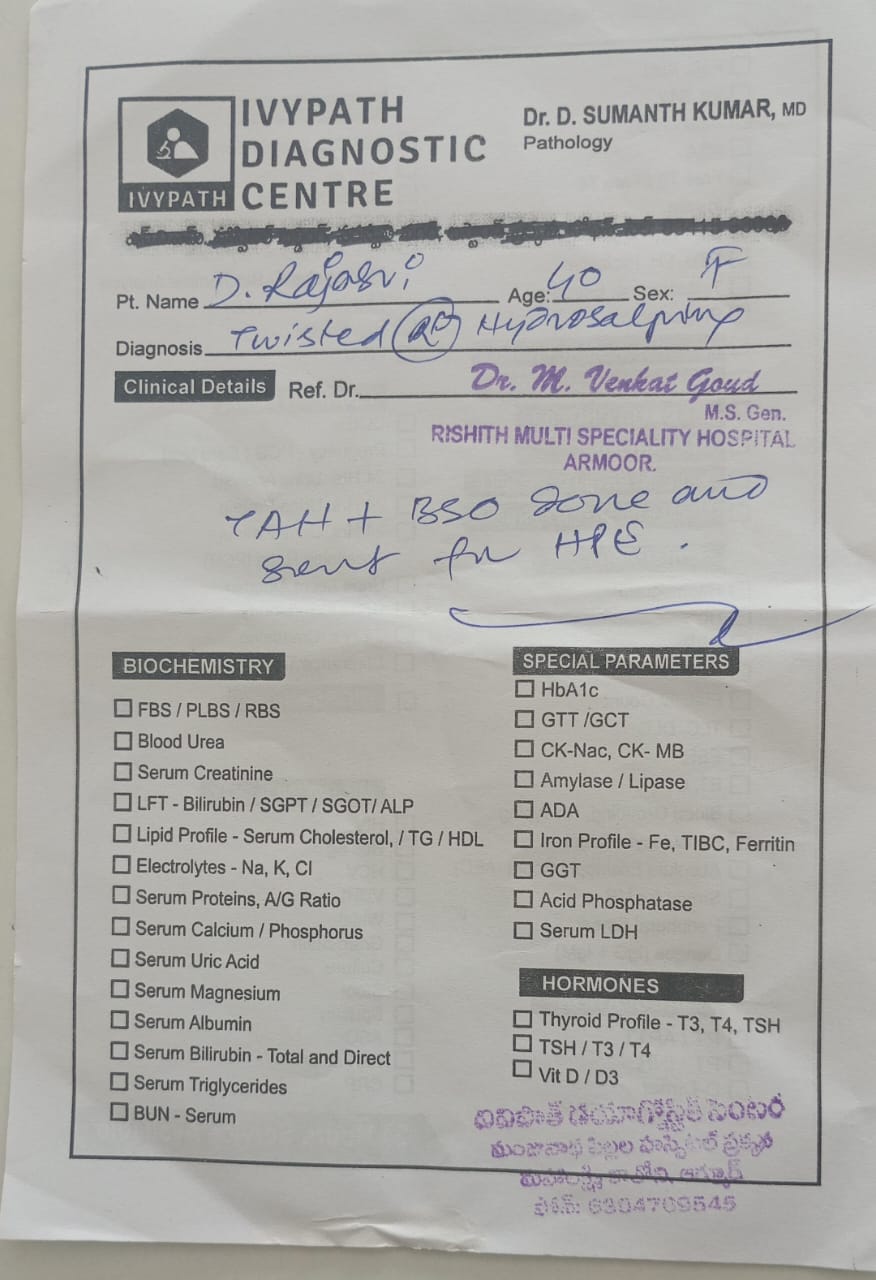 IVYPATH
IVYPATH
DIAGNOSTIC
CENTRE
Dr. D. SUMANTH KUMAR, MD
Pathology
Pt. Name D. Rajasri Age: 40 Sex: F
Diagnosis Twisted Rt Hydrosalpinx
Clinical Details Ref. Dr. Dr. M. Venkat Goud
M.S. Gen.
RISHITH MULTI SPECIALITY HOSPITAL
ARMOOR.
TAH + BSO done and
sent for HPE.
BIOCHEMISTRY
FBS / PLBS / RBS
Blood Urea
Serum Creatinine
LFT - Bilirubin / SGPT / SGOT/ ALP
Lipid Profile - Serum Cholesterol, / TG / HDL
Electrolytes - Na, K, Cl
Serum Proteins, A/G Ratio
Serum Calcium / Phosphorus
Serum Uric Acid
Serum Magnesium
Serum Albumin
Serum Bilirubin - Total and Direct
Serum Triglycerides
BUN - Serum
SPECIAL PARAMETERS
HbA1c
GTT /GCT
CK-Nac, CK- MB
Amylase / Lipase
ADA
Iron Profile - Fe, TIBC, Ferritin
GGT
Acid Phosphatase
Serum LDH
HORMONES
Thyroid Profile - T3, T4, TSH
TSH / T3 / T4
Vit D / D3
ఐవిపాత్ డయాగ్నోస్టిక్ సెంటర్
మంజునాథ పిల్లల హాస్పిటల్ ప్రక్కన
మహాలక్ష్మి కాలోని, ఆర్మూర్
ఫోన్: 6304709545